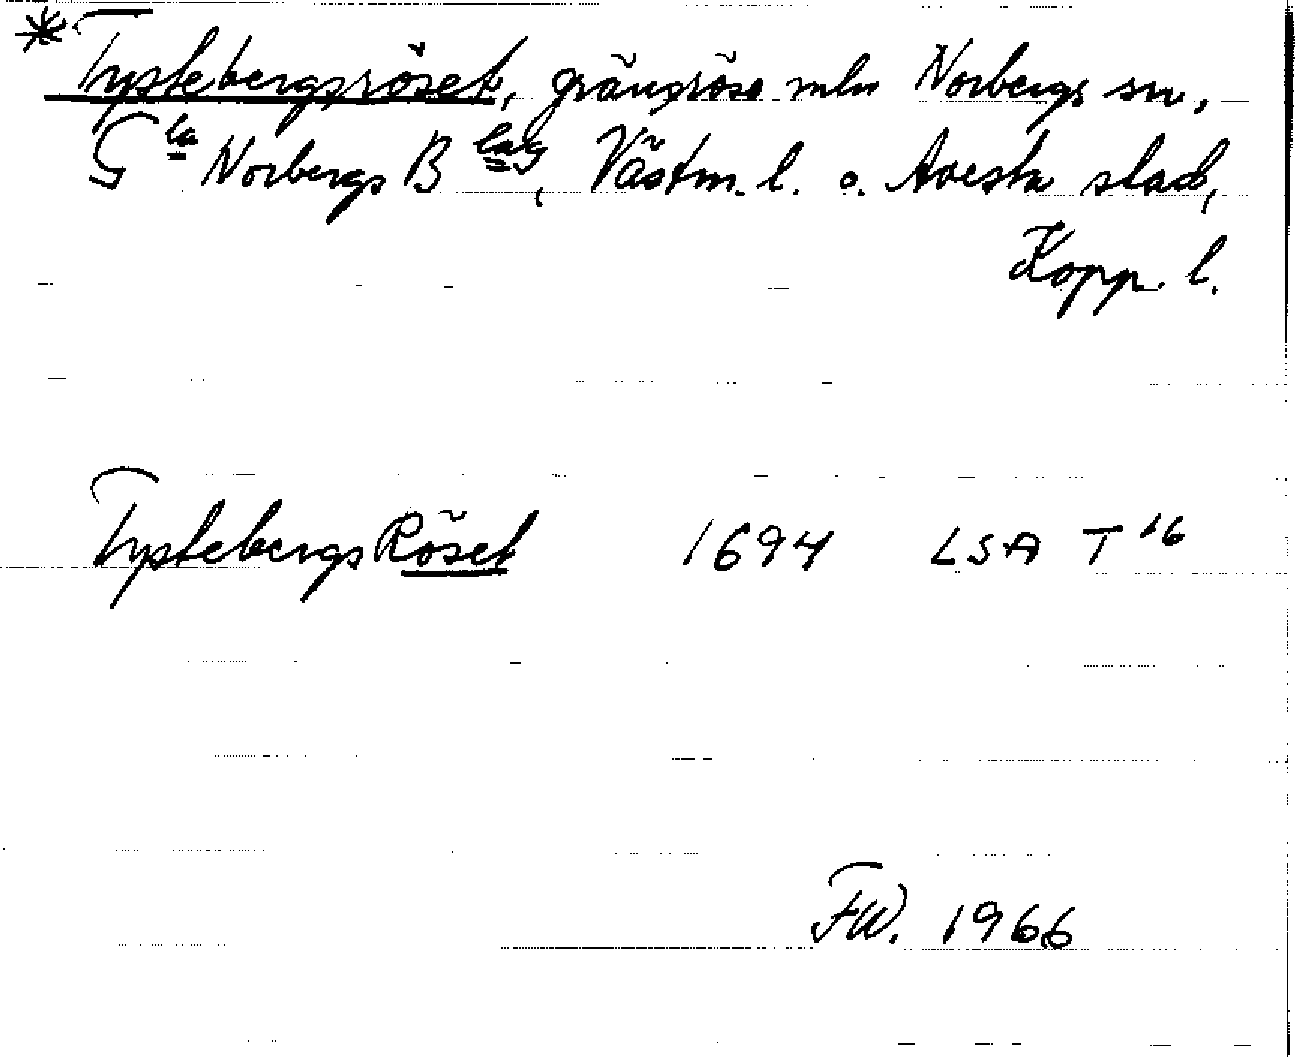 * Tystebergsröset, gränsröse mln Norbergs sn,
Gla Norbergs Blag, Västm. l. o. Avesta stad,
Kopp. l.
TystebergsRöset 1694 LSA T 16
FW. 1966